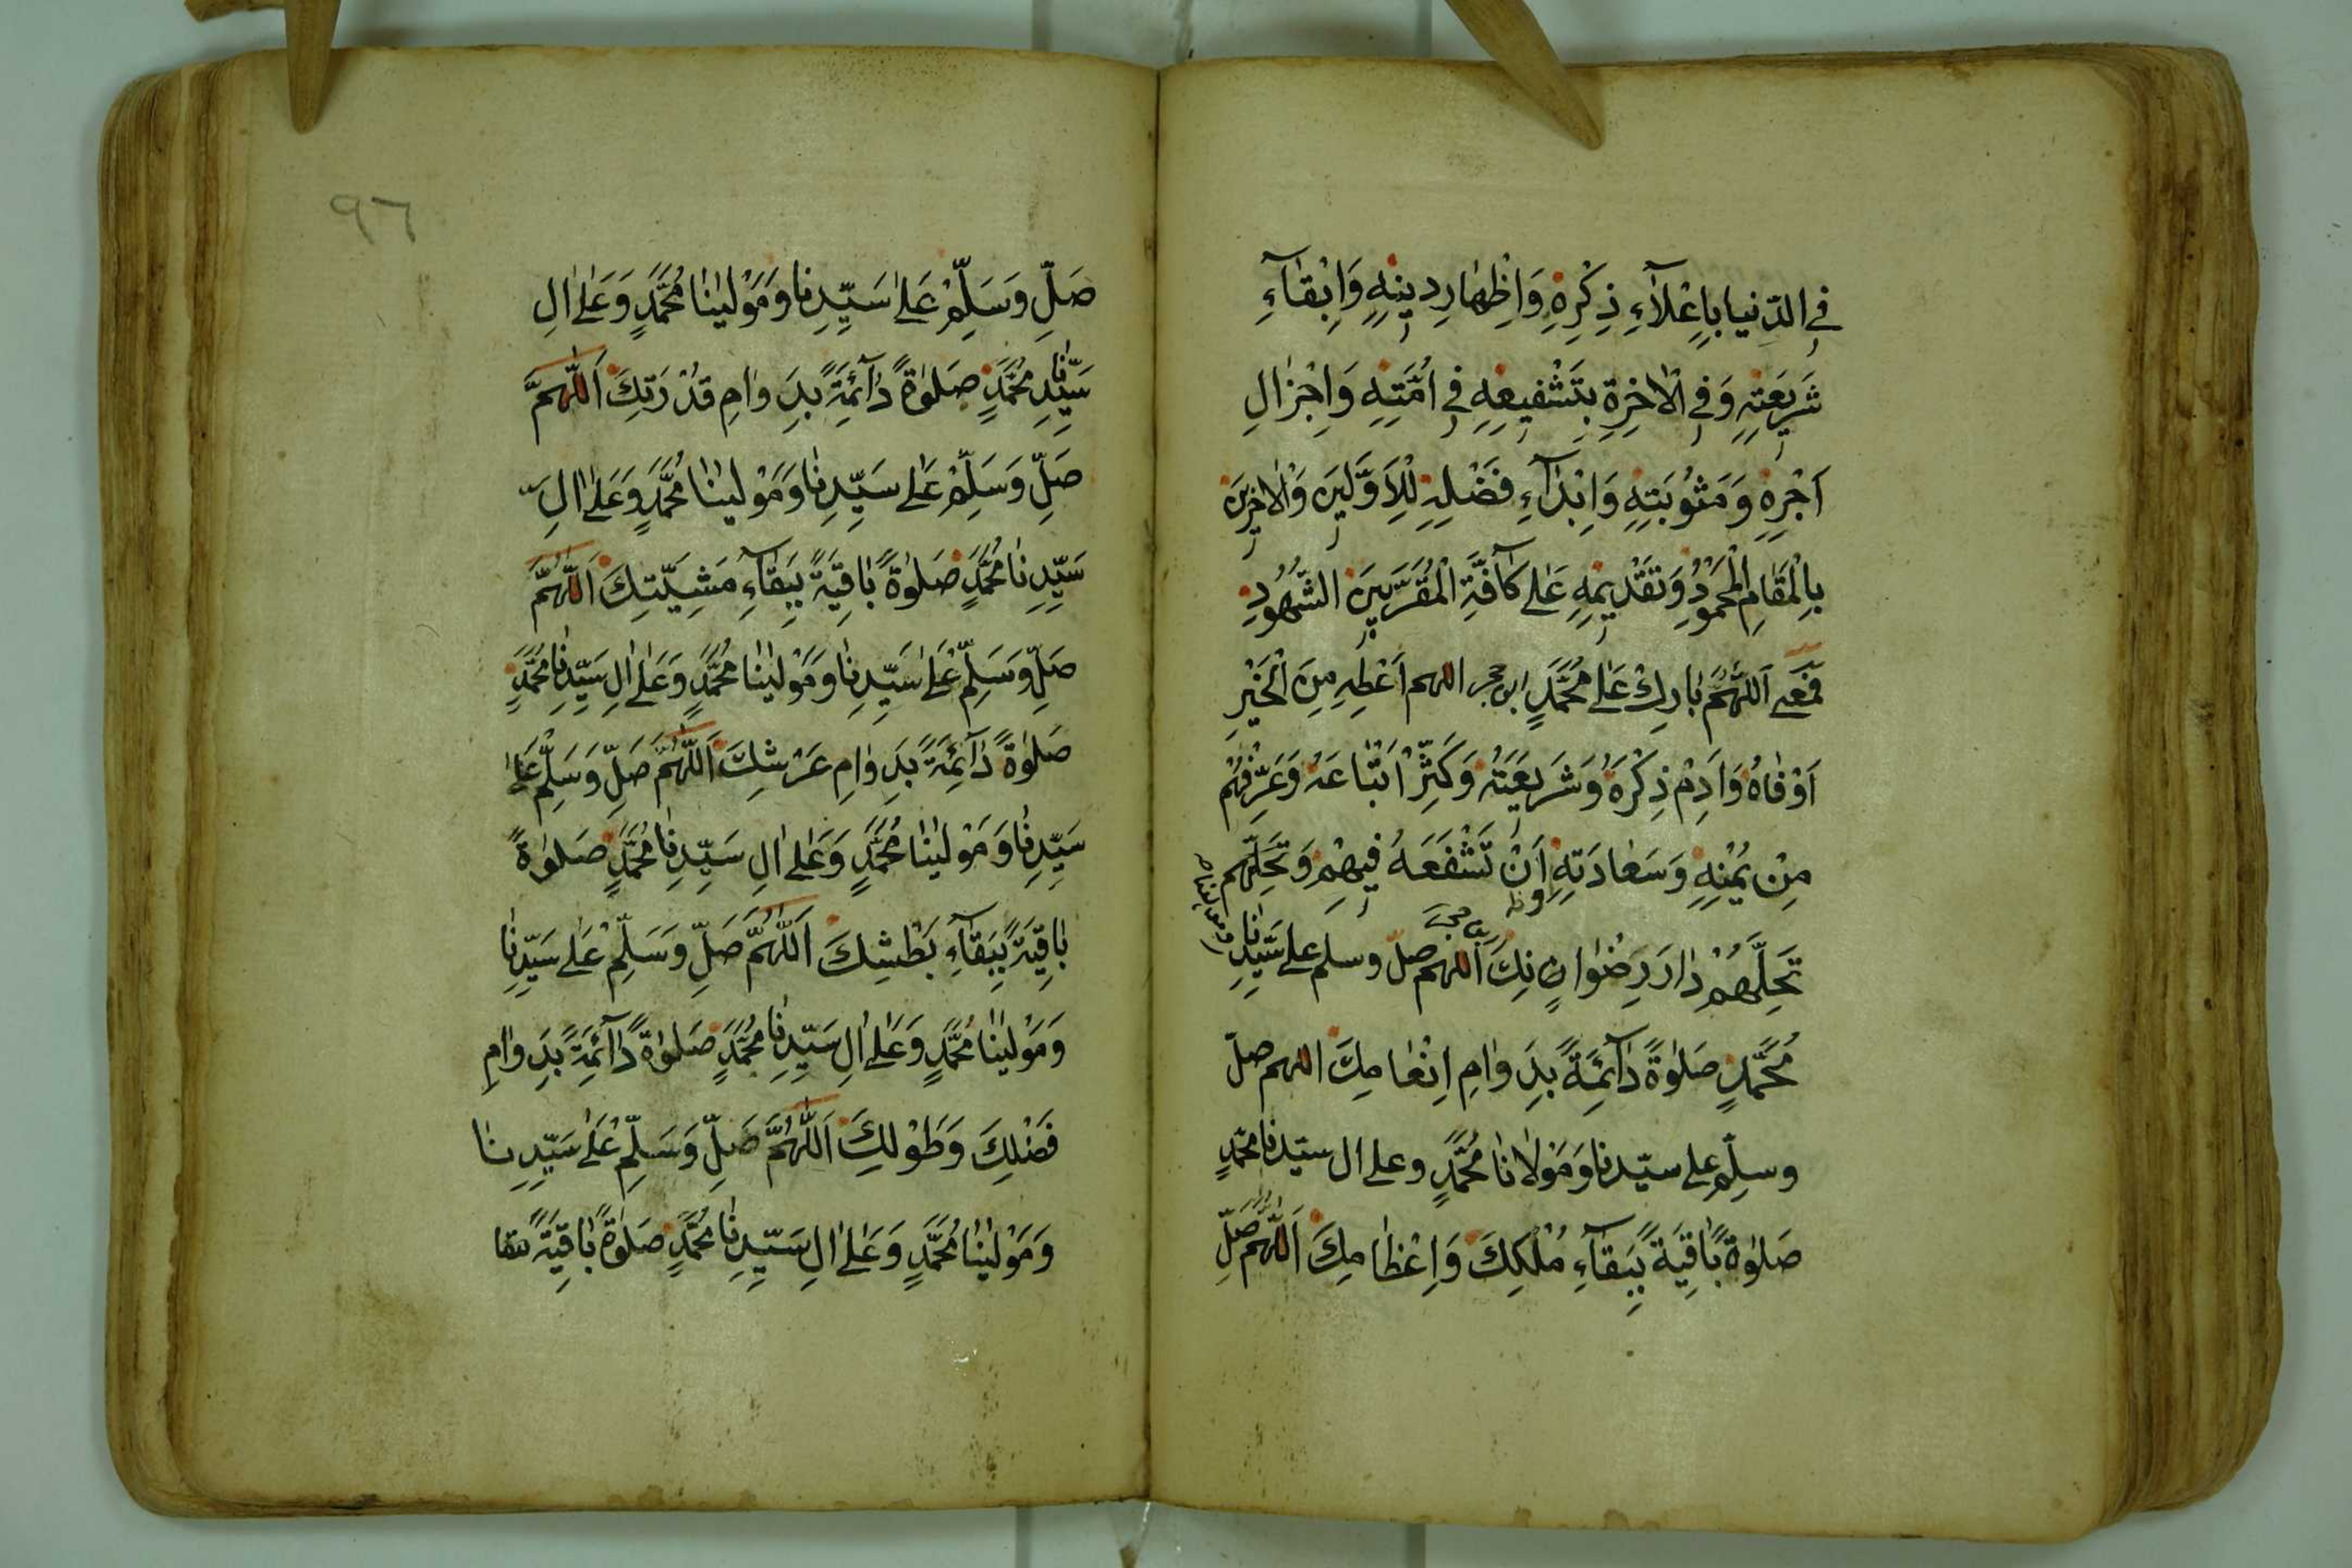 في الدّنيا بِاِعْلَآءِ ذِكْرِهِ وَاِظْهَارِ دينِهِ وَاِبْقَآءِ
شَريعَتِهِ وَفي الْاخِرَةِ بِتَشْفيعِهِ في اُمَّتِهِ وَاِجْزالِ
اَجْرِهِ وَمَثُوبَتِهِ وَاِبْدَآءِ فَضْلِهِ لِلْاَوَّلينَ وَالْاخِرينَ
بِالْمَقَامِ الْمَحْمُودِ وَتَقْديمِهِ عَلى كَآفَّةِ الْمُقَرَّبينَ الشُّهُودِ
فمعنى اَللّهُمَّ بَارِكْ عَلى مُحَمَّدٍ ابن حجر اللهم اَعْطِهِ مِنَ الْخَيْرِ
اَوْفَاهُ وَاَدِمْ ذِكْرَهُ وَشَريعَتَهُ وَكَثِّرْ اَتْبَاعَهُ وَعَرِّفْهُمْ
مِنْ يُمْنِهِ وَسَعَادَتِهِ اَنْ تَشْفَعَهُ فيهِمْ وَتُحِلَّهُمْ
تُحِلَّهُمْ دَارَ رِضْوَانِكَ اَللهم صلّ وسلم على سَيِّدِنَا
مُحَمَّدٍ صَلوةً دَآئِمَةً بِدَوَامِ اِنْعَامِكَ اللهم صلّ
وسلِّم على سيّدنا وَمَوْلَانَا مُحَمَّدٍ وعلى ال سيّدنا محمّدٍ
صَلوةً بَاقِيَةً بِبَقَآءِ مُلْكِكَ وَاِعْظَامِكَ اَللّهُمَّ صَلِّ
٩٦
صَلِّ وَسَلِّمْ عَلى سَيِّدِنا وَمَوْلينَا مُحَمَّدٍ وَعَلى الِ
سَيِّدِنَا مُحَمَّدٍ صَلوةً دَآئِمَةً بِدَوَامِ قُدْرَتِكَ اَللّهُمَّ
صَلِّ وَسَلِّمْ عَلى سَيِّدِنَا وَمَوْلينَا مُحَمَّدٍ وَعَلى الِ
سَيِّدِنَا مُحَمَّدٍ صَلوةً بَاقِيَةً بِبَقَآءِ مَشِيَّتِكَ اَللّهُمَّ
صَلِّ وَسَلِّمْ عَلى سَيِّدِنَا وَمَوْلينَا مُحَمَّدٍ وَعَلى الِ سَيِّدِنَا مُحَمَّدٍ
صَلوةً دَآئِمَةً بِدَوَامِ عَرْشِكَ اَللّهُمَّ صَلِّ وَسَلِّمْ عَلى
سَيِّدِنَا وَمَوْلينَا مُحَمَّدٍ وَعَلى الِ سَيِّدِنَا مُحَمَّدٍ صَلوةً
بَاقِيَةً بِبَقَآءِ بَطْشِكَ اَللّهُمَّ صَلِّ وَسَلِّمْ عَلى سَيِّدِنَا
وَمَوْلينَا مُحَمَّدٍ وَعَلى الِ سَيِّدِنَا مُحَمَّدٍ صَلوةً دَآئِمَةً بِدَوَامِ
فَضْلِكَ وَطَوْلِكَ اَللّهُمَّ صَلِّ وَسَلِّمْ عَلى سَيِّدِنَا
وَمَوْلينَا مُحَمَّدٍ وَعَلى الِ سَيِّدِنَا مُحَمَّدٍ صَلوةً بَاقِيَةً